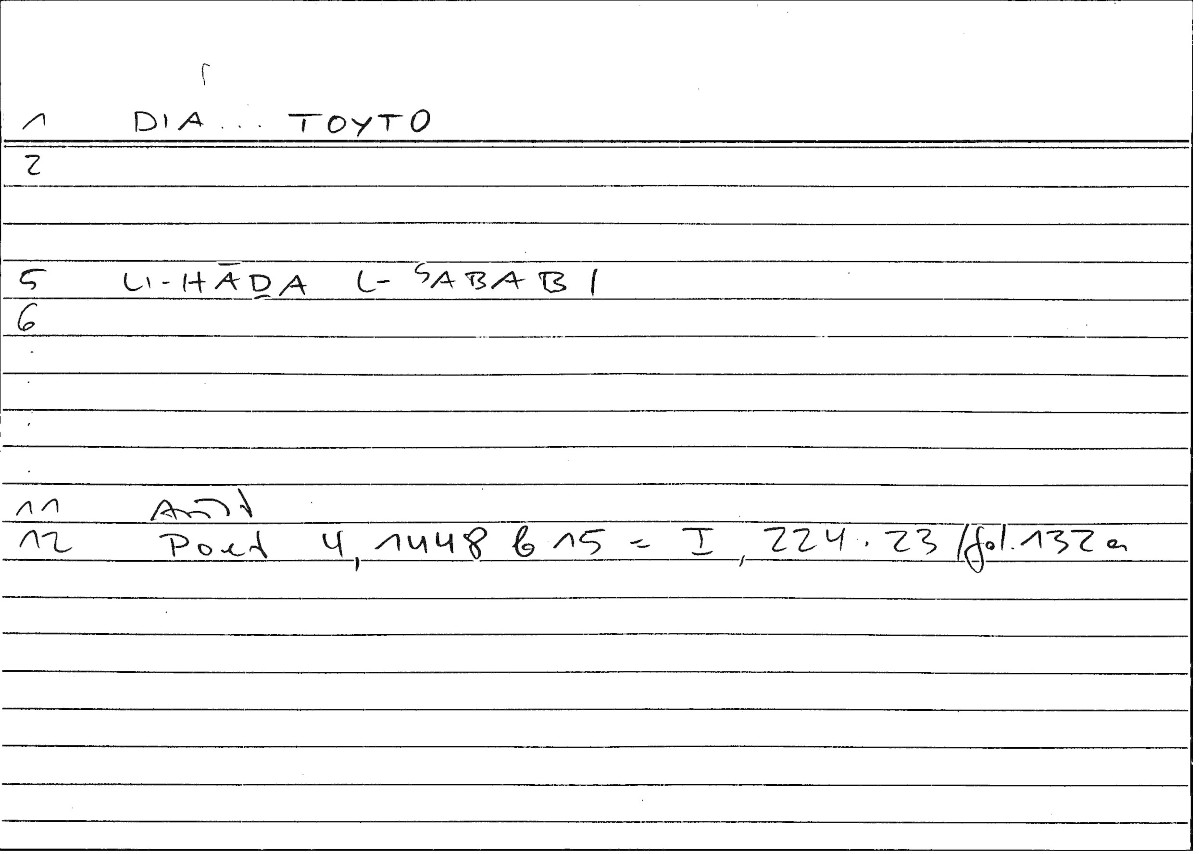 1 DIA ... TOYTO
2
5 LI-HĀḎA L-SABABI
6
.
.
.
.
11
12 Poet 4, 1448 b 15 = I, 224.23 / fol. 132 a